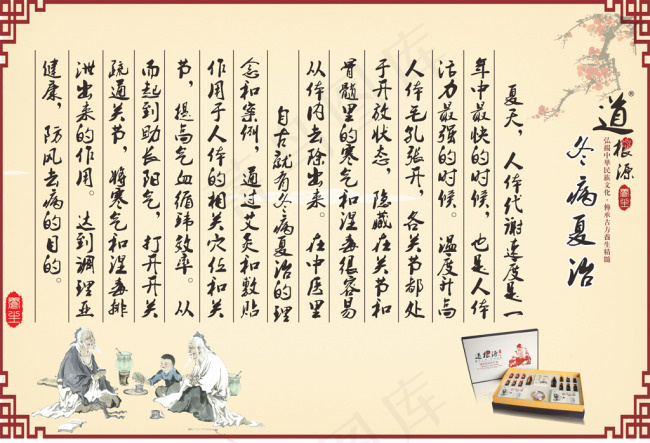 道根源®
弘揚中華民族文化·傳承古方養生精髓
冬病夏治
夏天，人体代谢速度是一
年中最快的时候，也是人体
活力最强的时候。温度升高
人体毛孔张开，各关节都处
于开放状态，隐藏在关节和
骨髓里的寒气和湿毒很容易
从体内去除出来。在中医里
自古就有冬病夏治的理
念和案例，通过艾灸和敷贴
作用于人体的相关穴位和关
节，提高气血循环效率。从
而起到助长阳气，打开开关
疏通关节，将寒气和湿毒排
泄出来的作用。达到调理亚
健康，防风去病的目的。
道根源